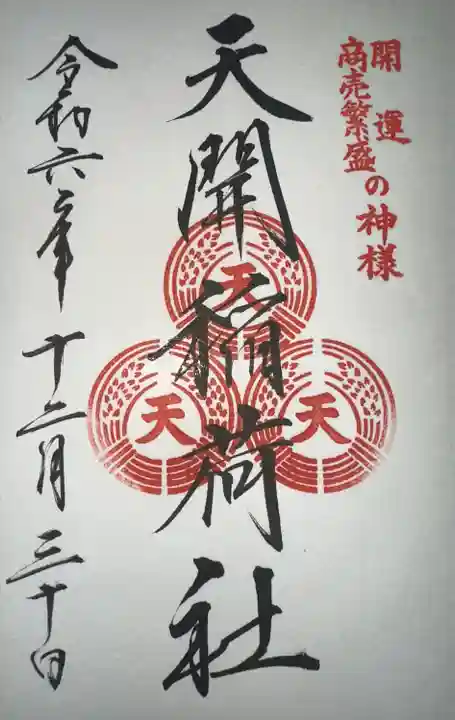 開運
商売繁盛
の神様
天開稲荷社
天
天
天
令和六年十二月三十日